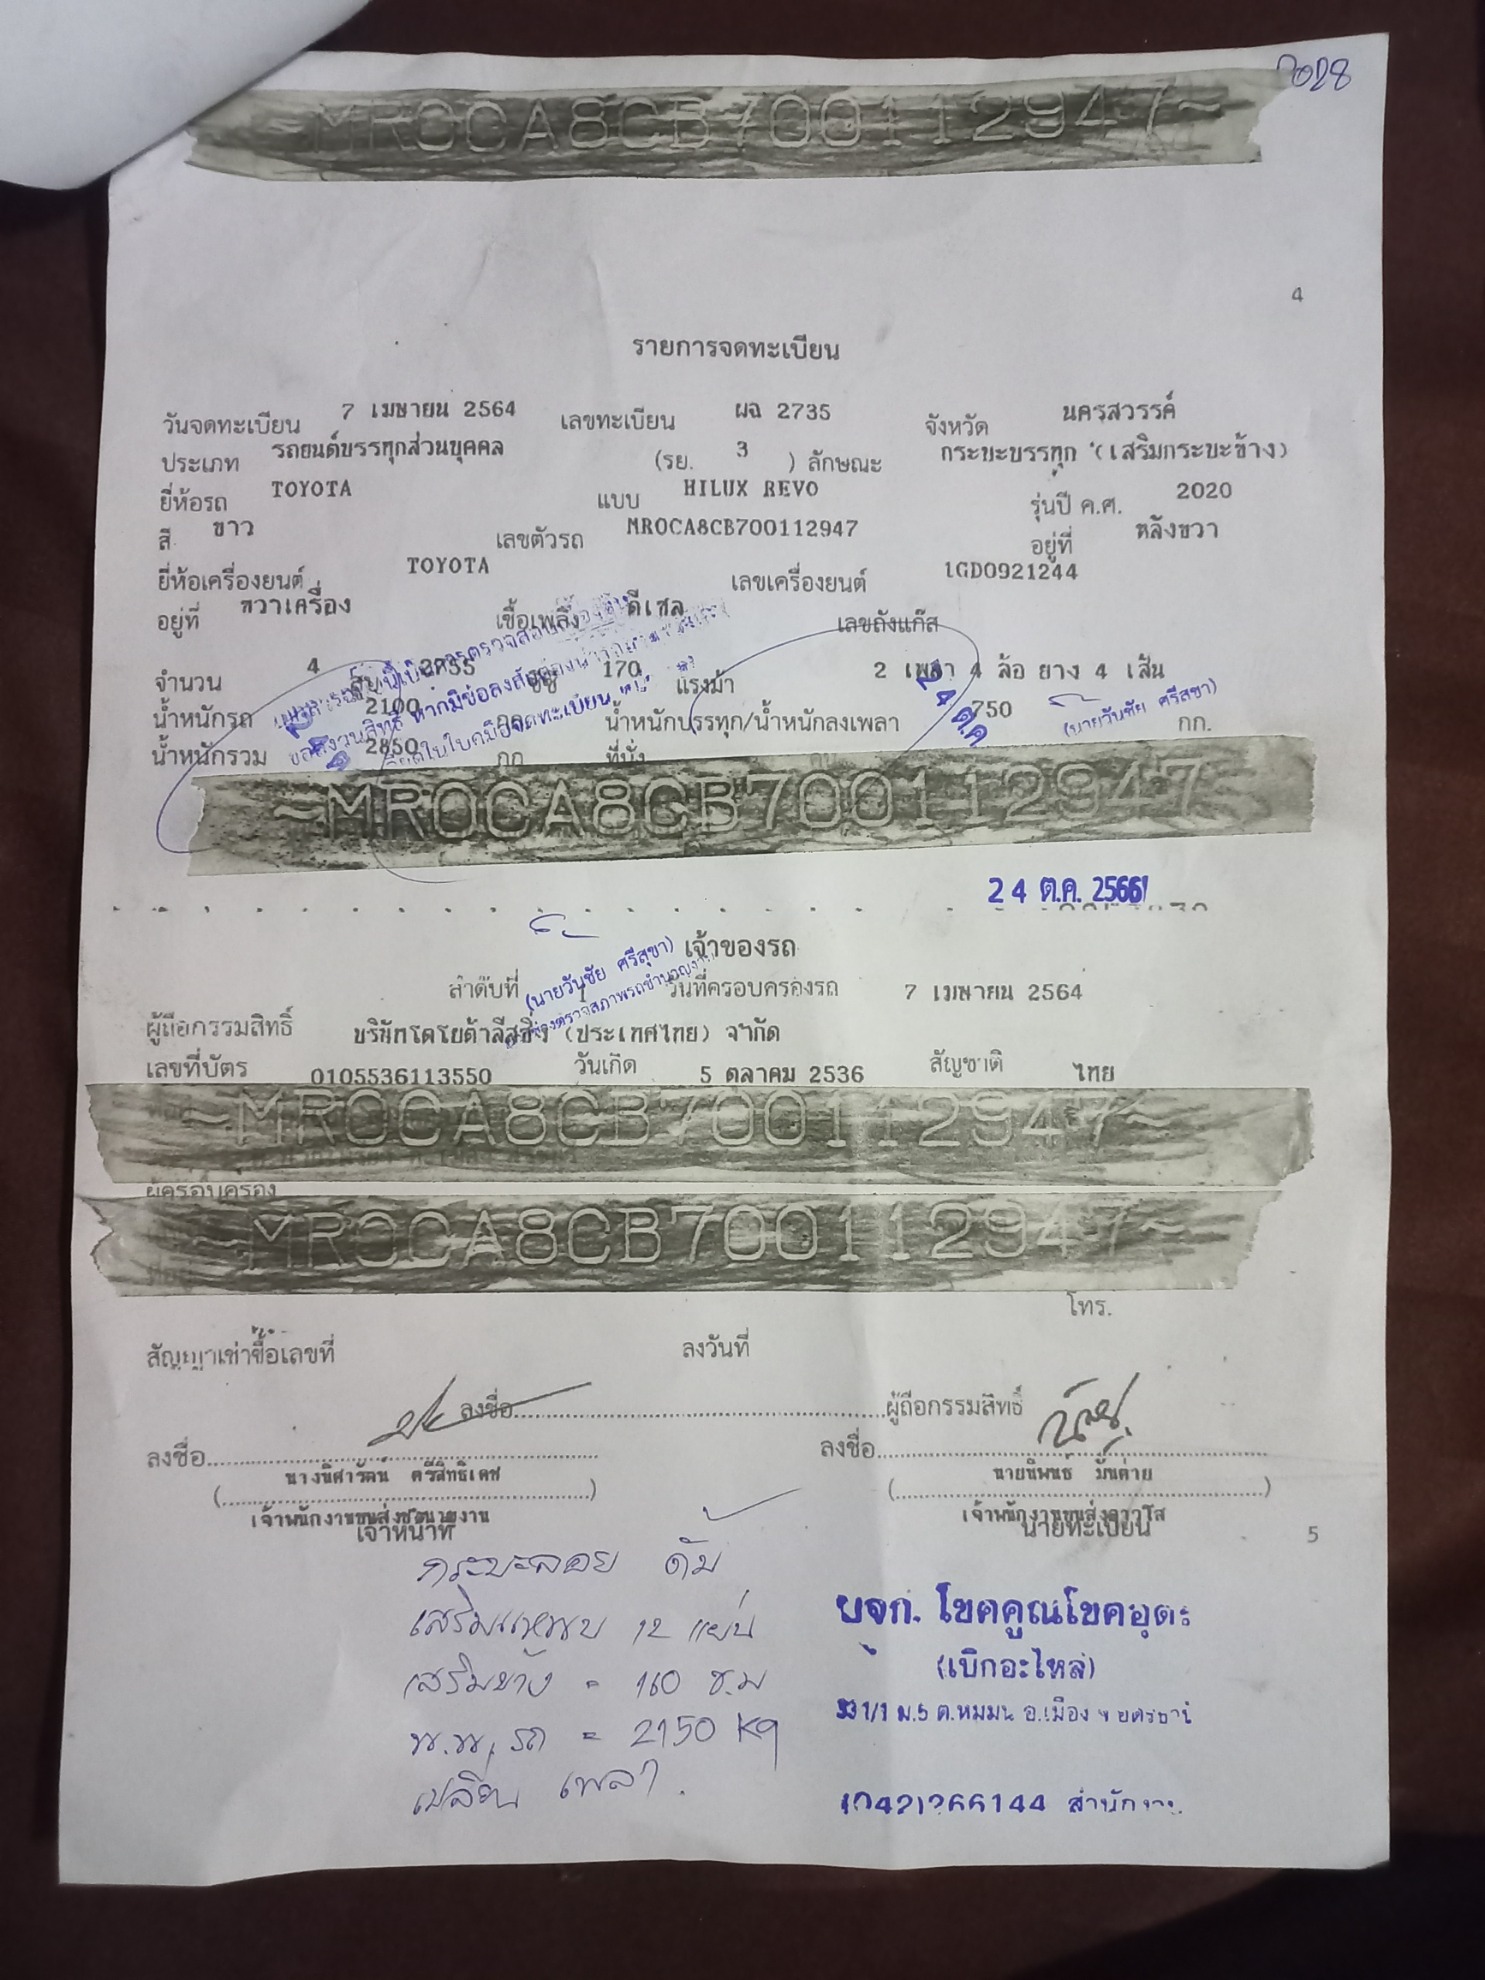 ~MROCA8CB700112947~
4
รายการจดทะเบียน
วันจดทะเบียน 7 เมษายน 2564 เลขทะเบียน ผฉ 2735 จังหวัด นครสวรรค์
ประเภท รถยนต์บรรทุกส่วนบุคคล (รย. 3 ) ลักษณะ กระบะบรรทุก (เสริมกระบะข้าง)
ยี่ห้อรถ TOYOTA แบบ HILUX REVO รุ่นปี ค.ศ. 2020
สี ขาว เลขตัวรถ MROCA8CB700112947 อยู่ที่ หลังขวา
ยี่ห้อเครื่องยนต์ TOYOTA เลขเครื่องยนต์ 1GD0921244
อยู่ที่ ขวาเครื่อง เชื้อเพลิง ดีเซล เลขถังแก๊ส
จำนวน 4 สูบ 2755 ซีซี 170 แรงม้า 2 เพลา 4 ล้อ ยาง 4 เส้น
น้ำหนักรถ 2100 กก. น้ำหนักบรรทุก/น้ำหนักลงเพลา 750 กก.
(นายวันชัย ศรีสุขา)
24 ต.ค.
น้ำหนักรวม 2850 กก ที่นั่ง
~MROCA8CB700112947~
24 ต.ค. 2566
เจ้าของรถ
(นายวันชัย ศรีสุขา)
ลำดับที่ 1 วันที่ครอบครองรถ 7 เมษายน 2564
ผู้ถือกรรมสิทธิ์ บริษัทโตโยต้าลีสซิ่ง (ประเทศไทย) จำกัด
เลขที่บัตร 0105536113550 วันเกิด 5 ตุลาคม 2536 สัญชาติ ไทย
~MROCA8CB700112947~
ผู้ครอบครอง
~MROCA8CB700112947~
โทร.
สัญญาเช่าซื้อเลขที่ ลงวันที่
ลงชื่อ ผู้ถือกรรมสิทธิ์
ลงชื่อ ลงชื่อ
เจ้าหน้าที่ นายทะเบียน
5
กระบะลอย ดั้ม
เสริมแหนบ 12 แผ่น
เสริมข้าง = 160 ซ.ม
น.น. รถ = 2150 kg
เปลี่ยน เพลา.
ยจก. โชคคูณโชคอุดร
(เบิกอะไหล่)
(042)266144 สำนักงาน